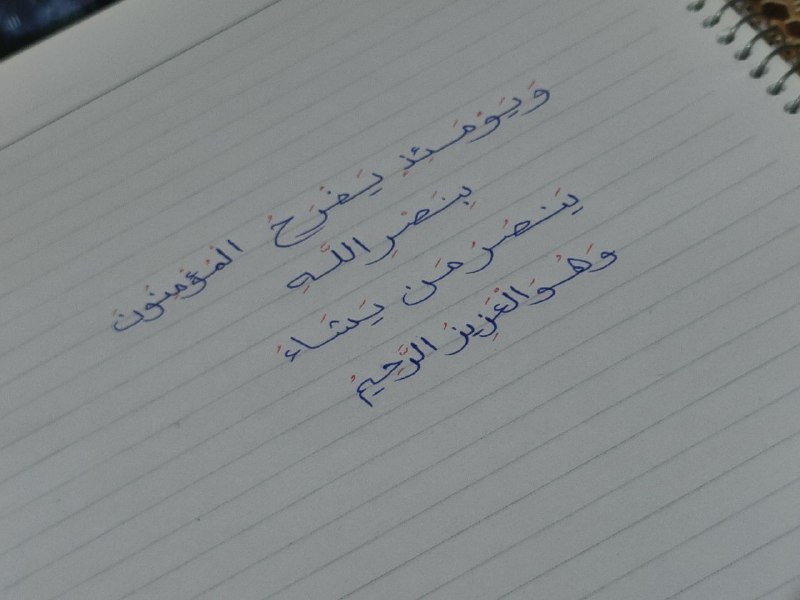 وَيَوْمَئِذٍ يَفْرَحُ الْمُؤْمِنُونَ
بِنَصْرِ اللَّهِ
يَنصُرُ مَن يَشَاءُ
وَهُوَ الْعَزِيزُ الرَّحِيمُ